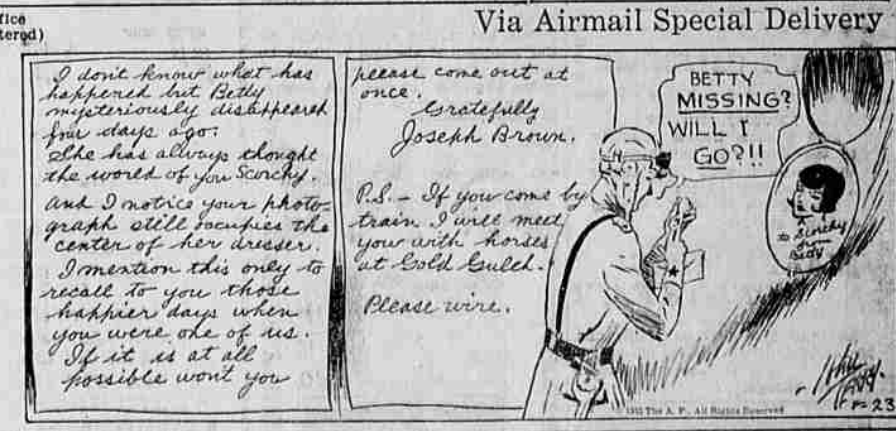 fice
tered)
Via Airmail Special Delivery
I don't know what has
happened but Betty
mysteriously disappeared
four days ago.
She has always thought
the world of you Scorchy.
And I notice your photo-
graph still occupies the
center of her dresser.
I mention this only to
recall to you those
happier days when
you were one of us.
If it is at all
possible wont you
please come out at
once.
Gratefully
Joseph Brown.
P.S. - If you come by
train I will meet
you with horses
at Gold Gulch.
Please wire.
BETTY
MISSING?
WILL I
GO?!!
to Scorchy
from
Betty
The A. P., All Rights Reserved
23